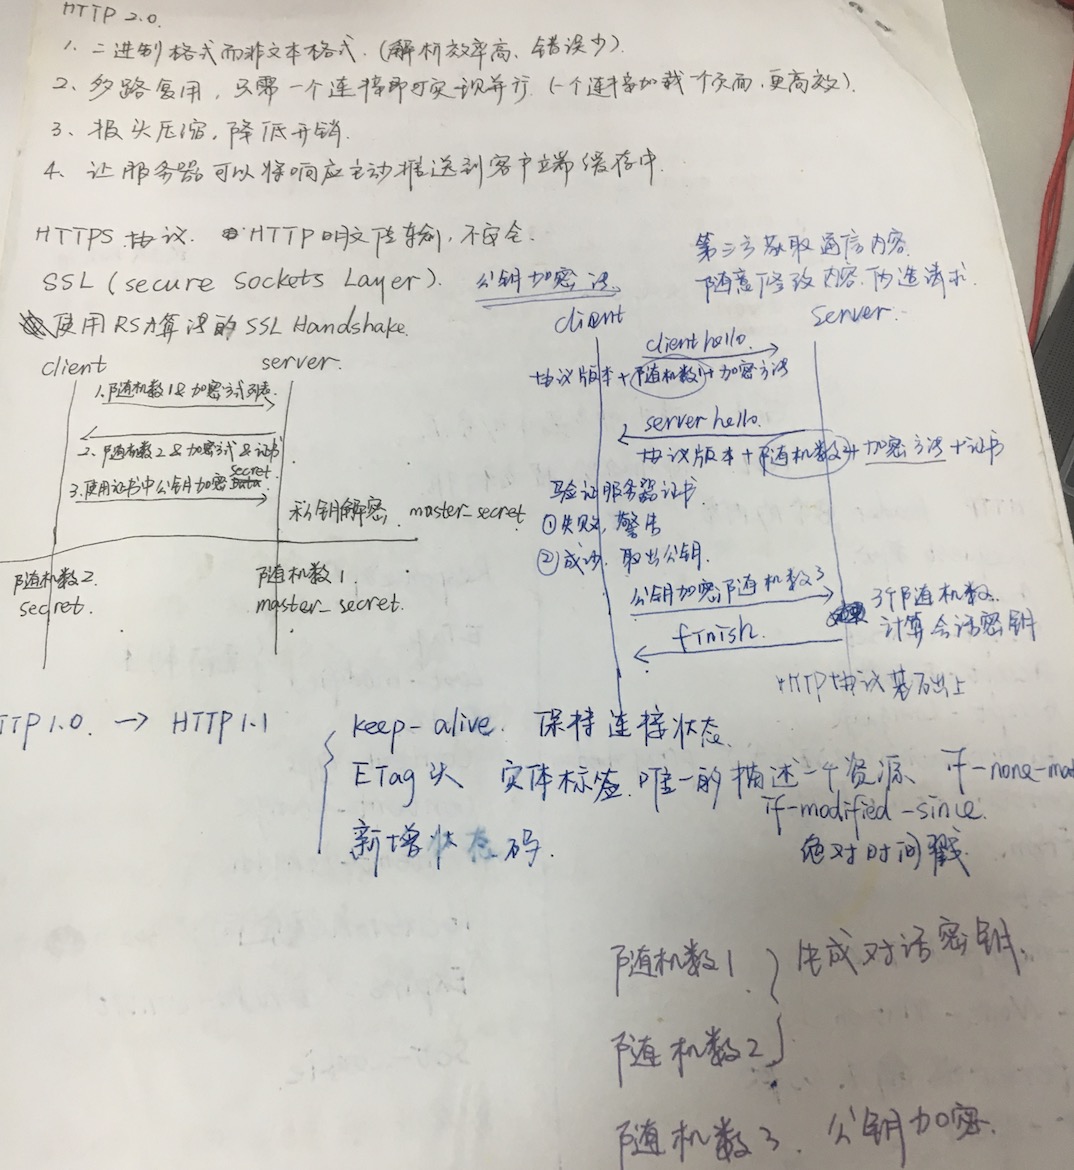 HTTP 2.0.
1. 二进制格式而非文本格式.(解析效率高、错误少).
2、多路复用，只需一个连接即可实现并行.(一个连接加载一个页面，更高效).
3、报头压缩，降低开销.
4、让服务器可以将响应主动推送到客户端缓存中.
HTTPS 协议. HTTP明文传输，不安全.
第三方获取通信内容.
随意修改内容.伪造请求.
SSL (secure sockets Layer). 公钥加密法.
使用RSA算法的SSL Handshake.
client server.
1.随机数1&加密方式列表.
2、随机数2&加密方式&证书
3.使用证书中公钥加密secret
私钥解密. master_secret
随机数2.
secret.
随机数1.
master_secret.
client server.
client hello.
协议版本+随机数1+加密方法
server hello.
协议版本+随机数2+加密方法+证书
验证服务器证书.
①失败，警告
②成功. 取出公钥.
公钥加密随机数3
3个随机数.
计算会话密钥
finish.
HTTP协议基础上
TTP1.0. → HTTP1.1
keep-alive. 保持连接状态.
ETag头 实体标签.唯一的描述一个资源、if-none-mat
if-modified-since.
绝对时间戳.
新增状态码.
随机数1
随机数2
生成对话密钥.
随机数3. 公钥加密.